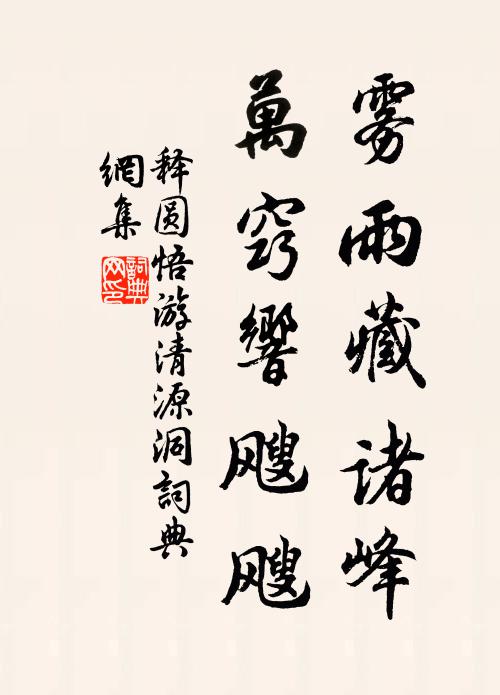 雾雨藏诸峰
萬窍響飕飕
释圆悟游清源洞詞典
網集
詞典
网印